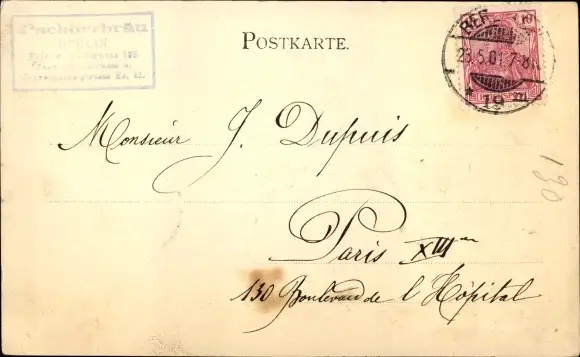 Pschorrbräu
BERLIN
POSTKARTE.
BER
29.5.01 7-8
* 19
10
Monsieur J. Dupuis
Paris XIII
130 Boulevard de l'Hôpital
130